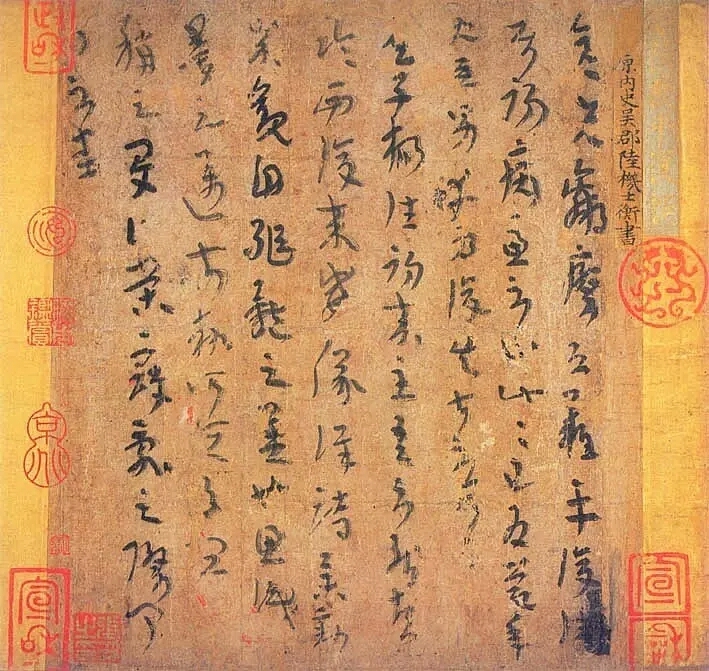 原內史吳郡陸機士衡書
彥先羸瘵恐難平復往屬
初病慮不止此此已為慶承
使唯男幸為復失前憂耳
吳子楊往初來主吾不能盡
臨西復來威儀詳跱舉動
成觀自軀體之美也思識
量之邁前勢所恒有宜
稱之夏伯榮寇亂之際聞
問不悉
政和
宣和
宣和